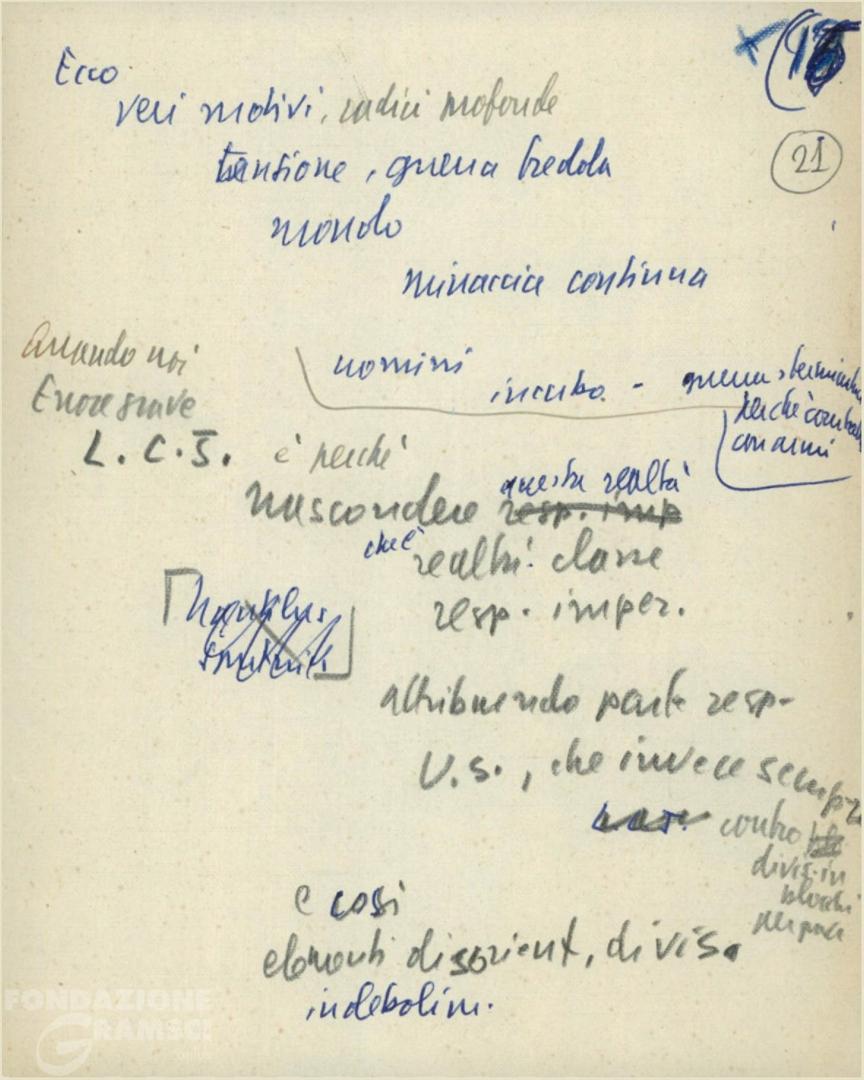 Ecco
veri motivi, radici profonde
21
tensione, guerra fredda
mondo
minaccia continua
Quando noi
uomini
incubo - guerra stermin
Errore grave
perché comb
con armi
L.C.J. è perché
questa realtà
nascondere resp. imp
che è
realtà classe
resp. imper.
attribuendo parte resp.
U.S., che invece sempre
contro
divis. in
blocchi
per pace
e così
elementi disorient, divis.
indebolim.
FONDAZIONE
GRAMSCI